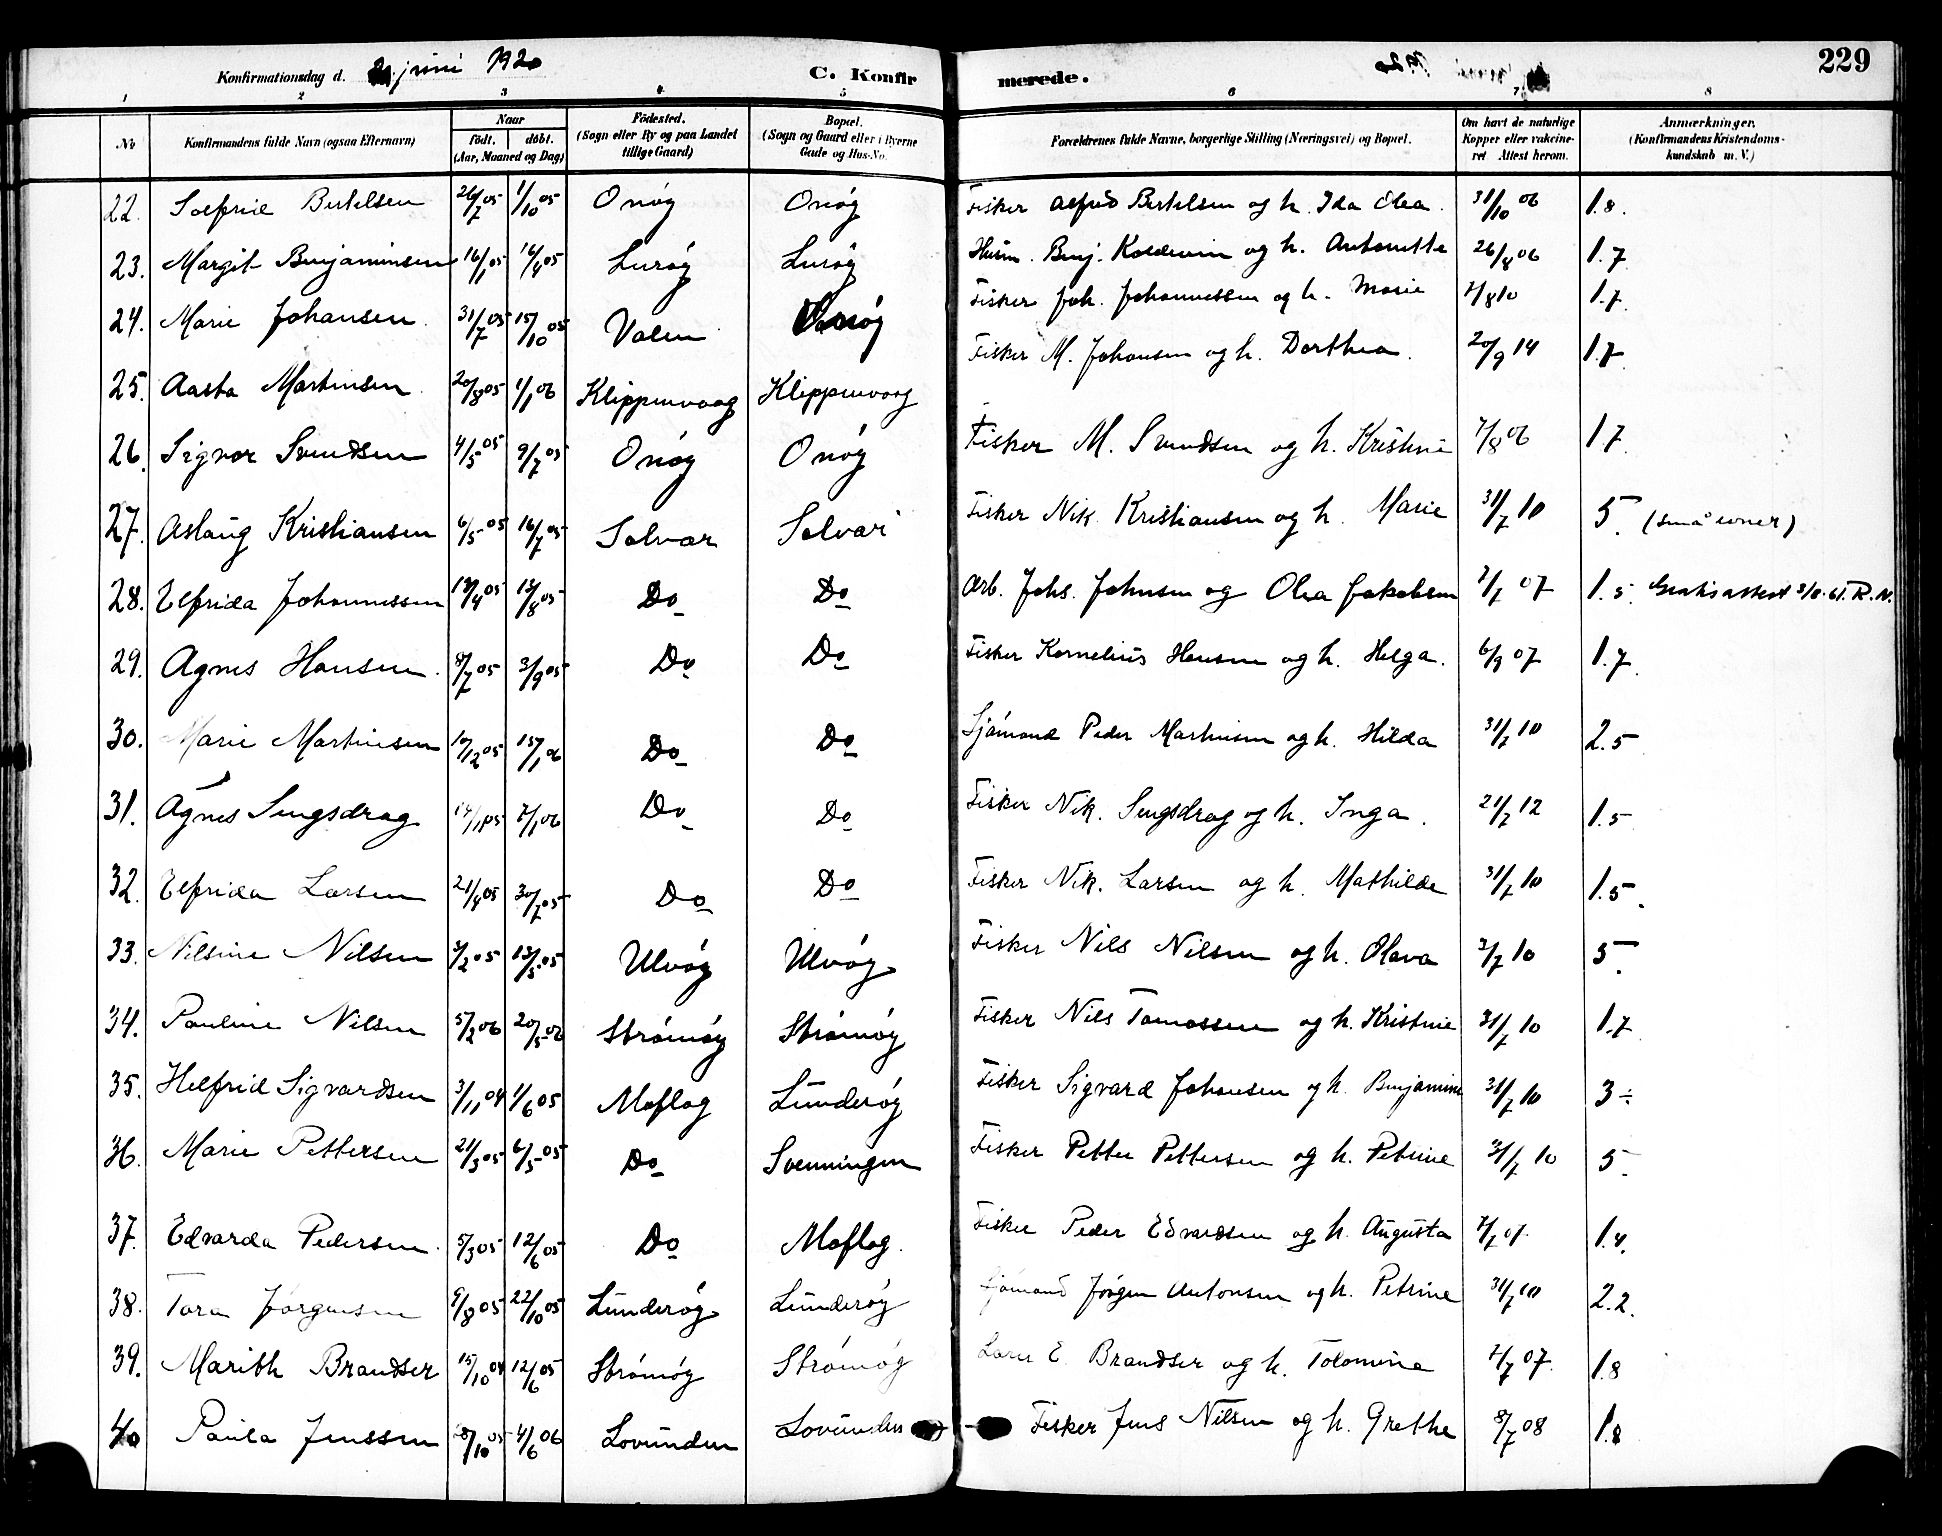 Konfirmationsdag d. juni 1920 C. Konfir merede. 1920 229
1 2 3 4 5 6 7 8
No Konfirmandens fulde Navn (ogsaa Efternavn) Naar født. døbt. (Aar, Maaned og Dag) Fødested. (Sogn eller By og paa Landet tillige Gaard) Bopæl. (Sogn og Gaard eller i Byerne Gade og Hus-No. Forældrenes fulde Navne, borgerlige Stilling (Næringsvei) og Bopæl. Om havt de naturlige Kopper eller vakcineret Attest herom. Anmærkninger. (Konfirmandens Kristendomskundskab m. V.)
22. Solfrid Bertelsen 26/7 05 1/10 05 Onøy Onøy Fisker Alfred Bertelsen og h. Ida Olea. 31/10 06 1.8.
23. Margit Benjaminsen 16/1 05 16/4 05 Lurøy Lurøy Husm. Benj. og h. Antonette 26/8 06 1.7
24. Marie Johansen 31/7 05 15/10 05 Valen Onøy Fisker Joh. Johannessen og h. Marie 1/8 10 1.7.
25. Aasta Martinsen 20/8 05 1/1 06 Klippenvaag Klippenvaag Fisker M. Johansen og h. Dorthea. 20/9 14 1.7
26. Sigvor Svendsen 4/5 05 9/7 05 Onøy Onøy Fisker M. Svendsen og h. Kristine 7/8 06 1.7
27. Aslaug Kristiansen 6/5 05 16/7 05 Selvær Selvær Fisker Nik. Kristiansen og h. Marie 31/7 10 5. (små evner)
28. Elfrida Johannessen 19/4 05 13/8 05 Do Do Arb. Johs. Johnsen og Olea Jakobsen 7/7 07 1.5. Gratisattest 3/8.61. R.N.
29. Agnes Hansen. 8/7 05 3/9 05 Do Do Fisker Kornelius Hansen og h. Helga. 6/9 07 1.7.
30. Marie Martinsen 10/12 05 15/1 06 Do Do Sjømand Peder Martinsen og h. Hilda 31/7 10 2.5
31. Agnes Sengsdrag 14/11 05 7/1 06 Do Do Fisker Nik. Sengsdrag og h. Inga. 21/7 12 1.5
32. Elfrida Larsen 21/4 05 30/7 05 Do Do Fisker Nik. Larsen og h. Mathilde 31/7 10 1.5.
33. Nilsine Nilsen 3/2 05 13/5 05 Ulvøy Ulvøy Fisker Nils Nilsen og h. Olava 3/7 10 5.
34. Pauline Nilsen 5/2 06 20/5 06 Strømøy Strømøy Fisker Nils Tomassen og h. Kristine 31/7 10 1.7
35. Helfrid Sigvardsen 3/11 04 1/6 05 Moflag Lunderøy Fisker Sigvard Johansen og h. Benjamine 31/7 10 3 ÷
36. Marie Pettersen 21/3 05 6/5 05 Do Svenningen Fisker Petter Pettersen og h. Petrine 31/7 10 5.
37. Edvarda Pedersen. 5/3 05 12/6 05 Do Moflag. Fisker Peder Edvardsen og h. Augusta 7/7 07. 1.4.
38. Tora Jørgensen 9/8 05 22/10 05 Lunderøy Lunderøy Sjømand Jørgen Antonsen og h. Petrine 31/7 10 2.2.
39. Marith Brandser 15/10 04 12/6 05 Strømøy Strømøy E. Brandser og h. Tolomine 7/7 07. 1.8
40 Paula Jenssen 8/10 05 4/6 06 Lovunden Lovunden Fisker Jens Nilsen og h. Grethe 8/7 08 1.8